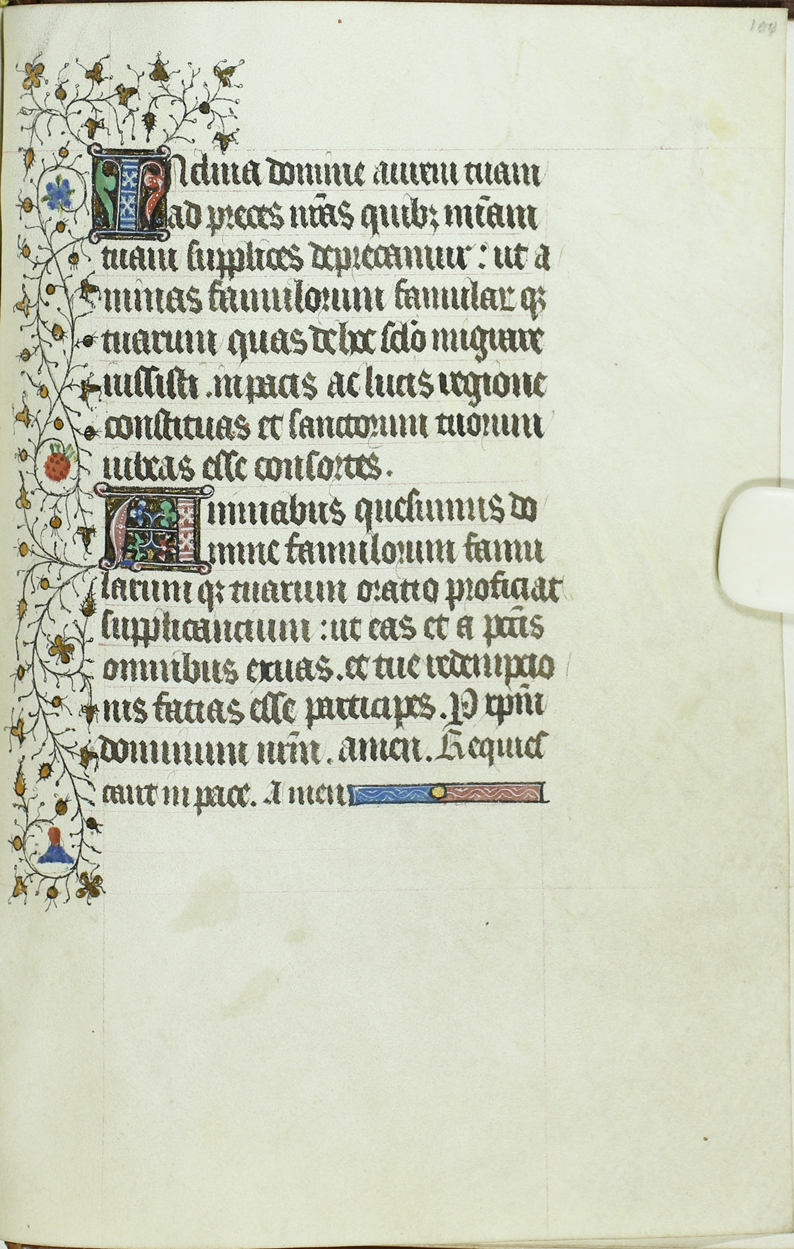 104
Inclina domine aurem tuam
ad preces nr̄as quibꝫ mīam
tuam supplices deprecamur : ut a
nimas famulorum famular qꝫ
tuarum quas de hoc sc̄lo migrare
iussisti . in pacis ac lucis regione
constituas et sanctorum tuorum
iubeas esse consortes .
Animabus quesumus do
mine famulorum famu
larum qꝫ tuarum oratio proficiat
supplicancium : ut eas et a pcc̄is
omnibus exuas . et tue redempcio
nis facias esse participes . P xp̄m
dominum nr̄m . amen . Requies
cant in pace . Amen